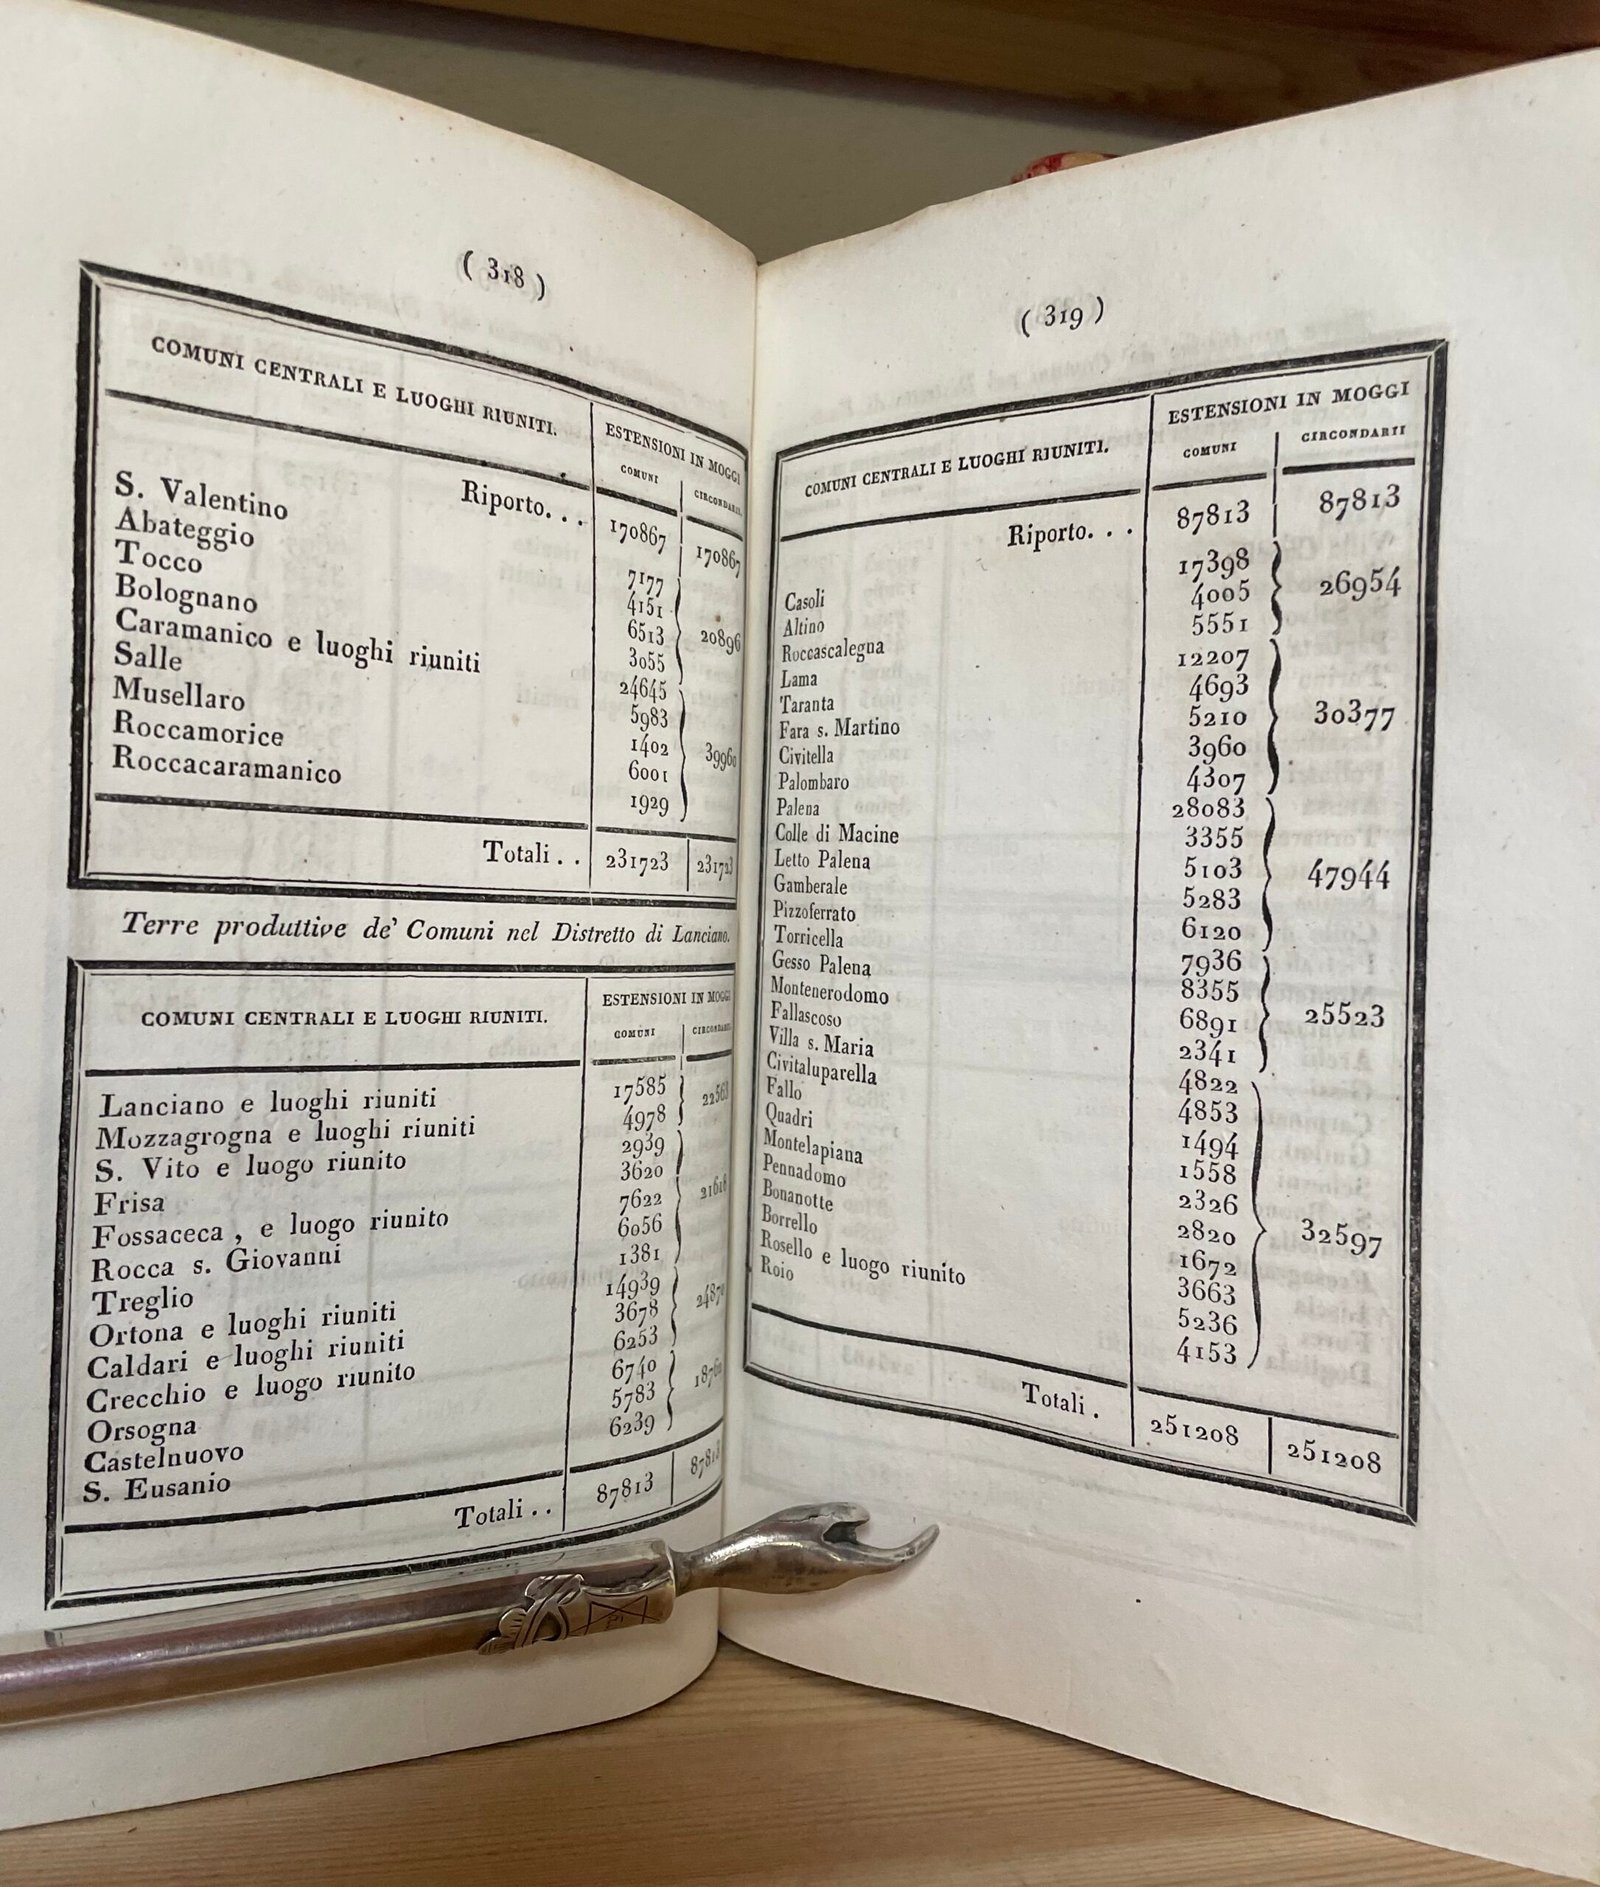 ( 318 )
COMUNI CENTRALI E LUOGHI RIUNITI. ESTENSIONI IN MOGGI
COMUNI CIRCONDARII.
Riporto. . . 170867 170867
S. Valentino 7177
Abateggio 4151
Tocco 6513 20896
Bolognano 3055
Caramanico e luoghi riuniti 24645
Salle 5983
Musellaro 1402 39960
Roccamorice 6001
Roccacaramanico 1929
Totali . . 231723 231723
Terre produttive de' Comuni nel Distretto di Lanciano.
COMUNI CENTRALI E LUOGHI RIUNITI. ESTENSIONI IN MOGGI
COMUNI CIRCONDARII
Lanciano e luoghi riuniti 17585 22563
Mozzagrogna e luoghi riuniti 4978
S. Vito e luogo riunito 2939
Frisa 3620
Fossaceca , e luogo riunito 7622 21618
Rocca s. Giovanni 6056
Treglio 1381
Ortona e luoghi riuniti 14939
Caldari e luoghi riuniti 3678 24870
Crecchio e luogo riunito 6253
Orsogna 6740
Castelnuovo 5783 18762
S. Eusanio 6239
Totali . . 87813 87813
( 319 )
COMUNI CENTRALI E LUOGHI RIUNITI. ESTENSIONI IN MOGGI
COMUNI CIRCONDARII
Riporto. . . 87813 87813
Casoli 17398
Altino 4005 26954
Roccascalegna 5551
Lama 12207
Taranta 4693
Fara s. Martino 5210 30377
Civitella 3960
Palombaro 4307
Palena 28083
Colle di Macine 3355
Letto Palena 5103 47944
Gamberale 5283
Pizzoferrato 6120
Torricella 7936
Gesso Palena 8355
Montenerodomo 6891 25523
Fallascoso 2341
Villa s. Maria 4822
Civitaluparella 4853
Fallo 1494
Quadri 1558
Montelapiana 2326
Pennadomo 2820 32597
Bonanotte 1672
Borrello 3663
Rosello e luogo riunito 5236
Roio 4153
Totali . 251208 251208